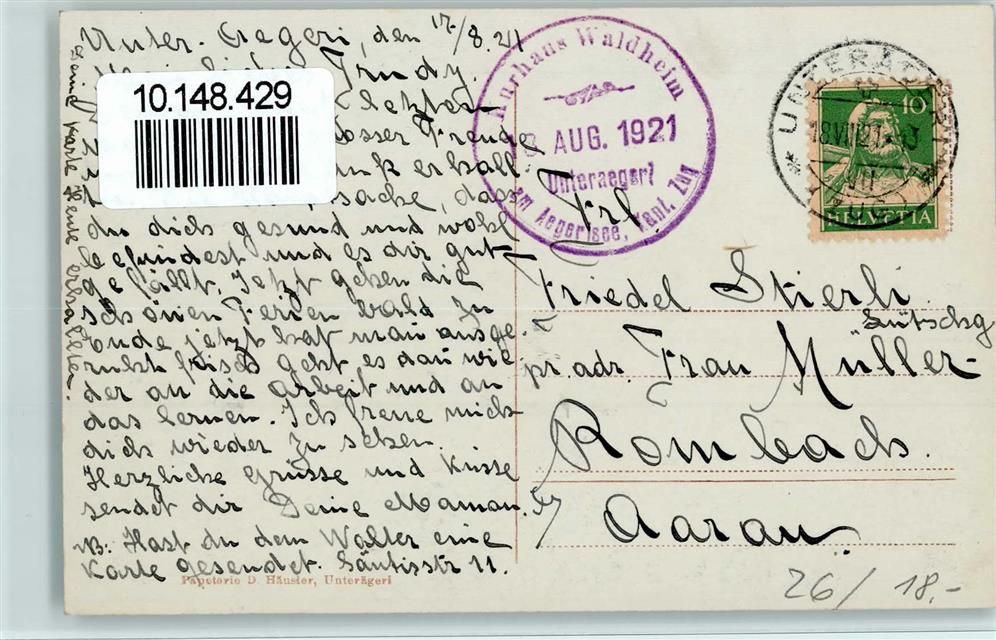 Unter-Aegeri, den 17/8.21
Trudy.
letzten
grosser Freude
erhall
sache, dass
du dich gesund und wohl
befindest und es dir gut
gefällt. Jetzt gehen die
schönen Ferien bald zu
ende jetzt hat man ausge
ruht frisch geht es dan wie
der an die arbeit und an
das lernen. Ich freue mich
dich wieder zu sehen.
Herzliche Grüsse und Küsse
sendet dir Deine Maman.
NB: Hast du dem Walter eine
Karte gesendet. Säntisstr 11.
Karte heute erhalten.
10.148.429
Kurhaus Waldheim
8 AUG. 1921
Unteraegeri
am Aegerisee, Kant. Zug
UNTERÄGERI
18.VIII.21
10
HELVETIA
Frl.
Friedel Stierli
pr. adr. Frau Müller-
Lütschg
Rombach
Aarau
Papeterie D. Häusler, Unterägeri
26/ 18.-